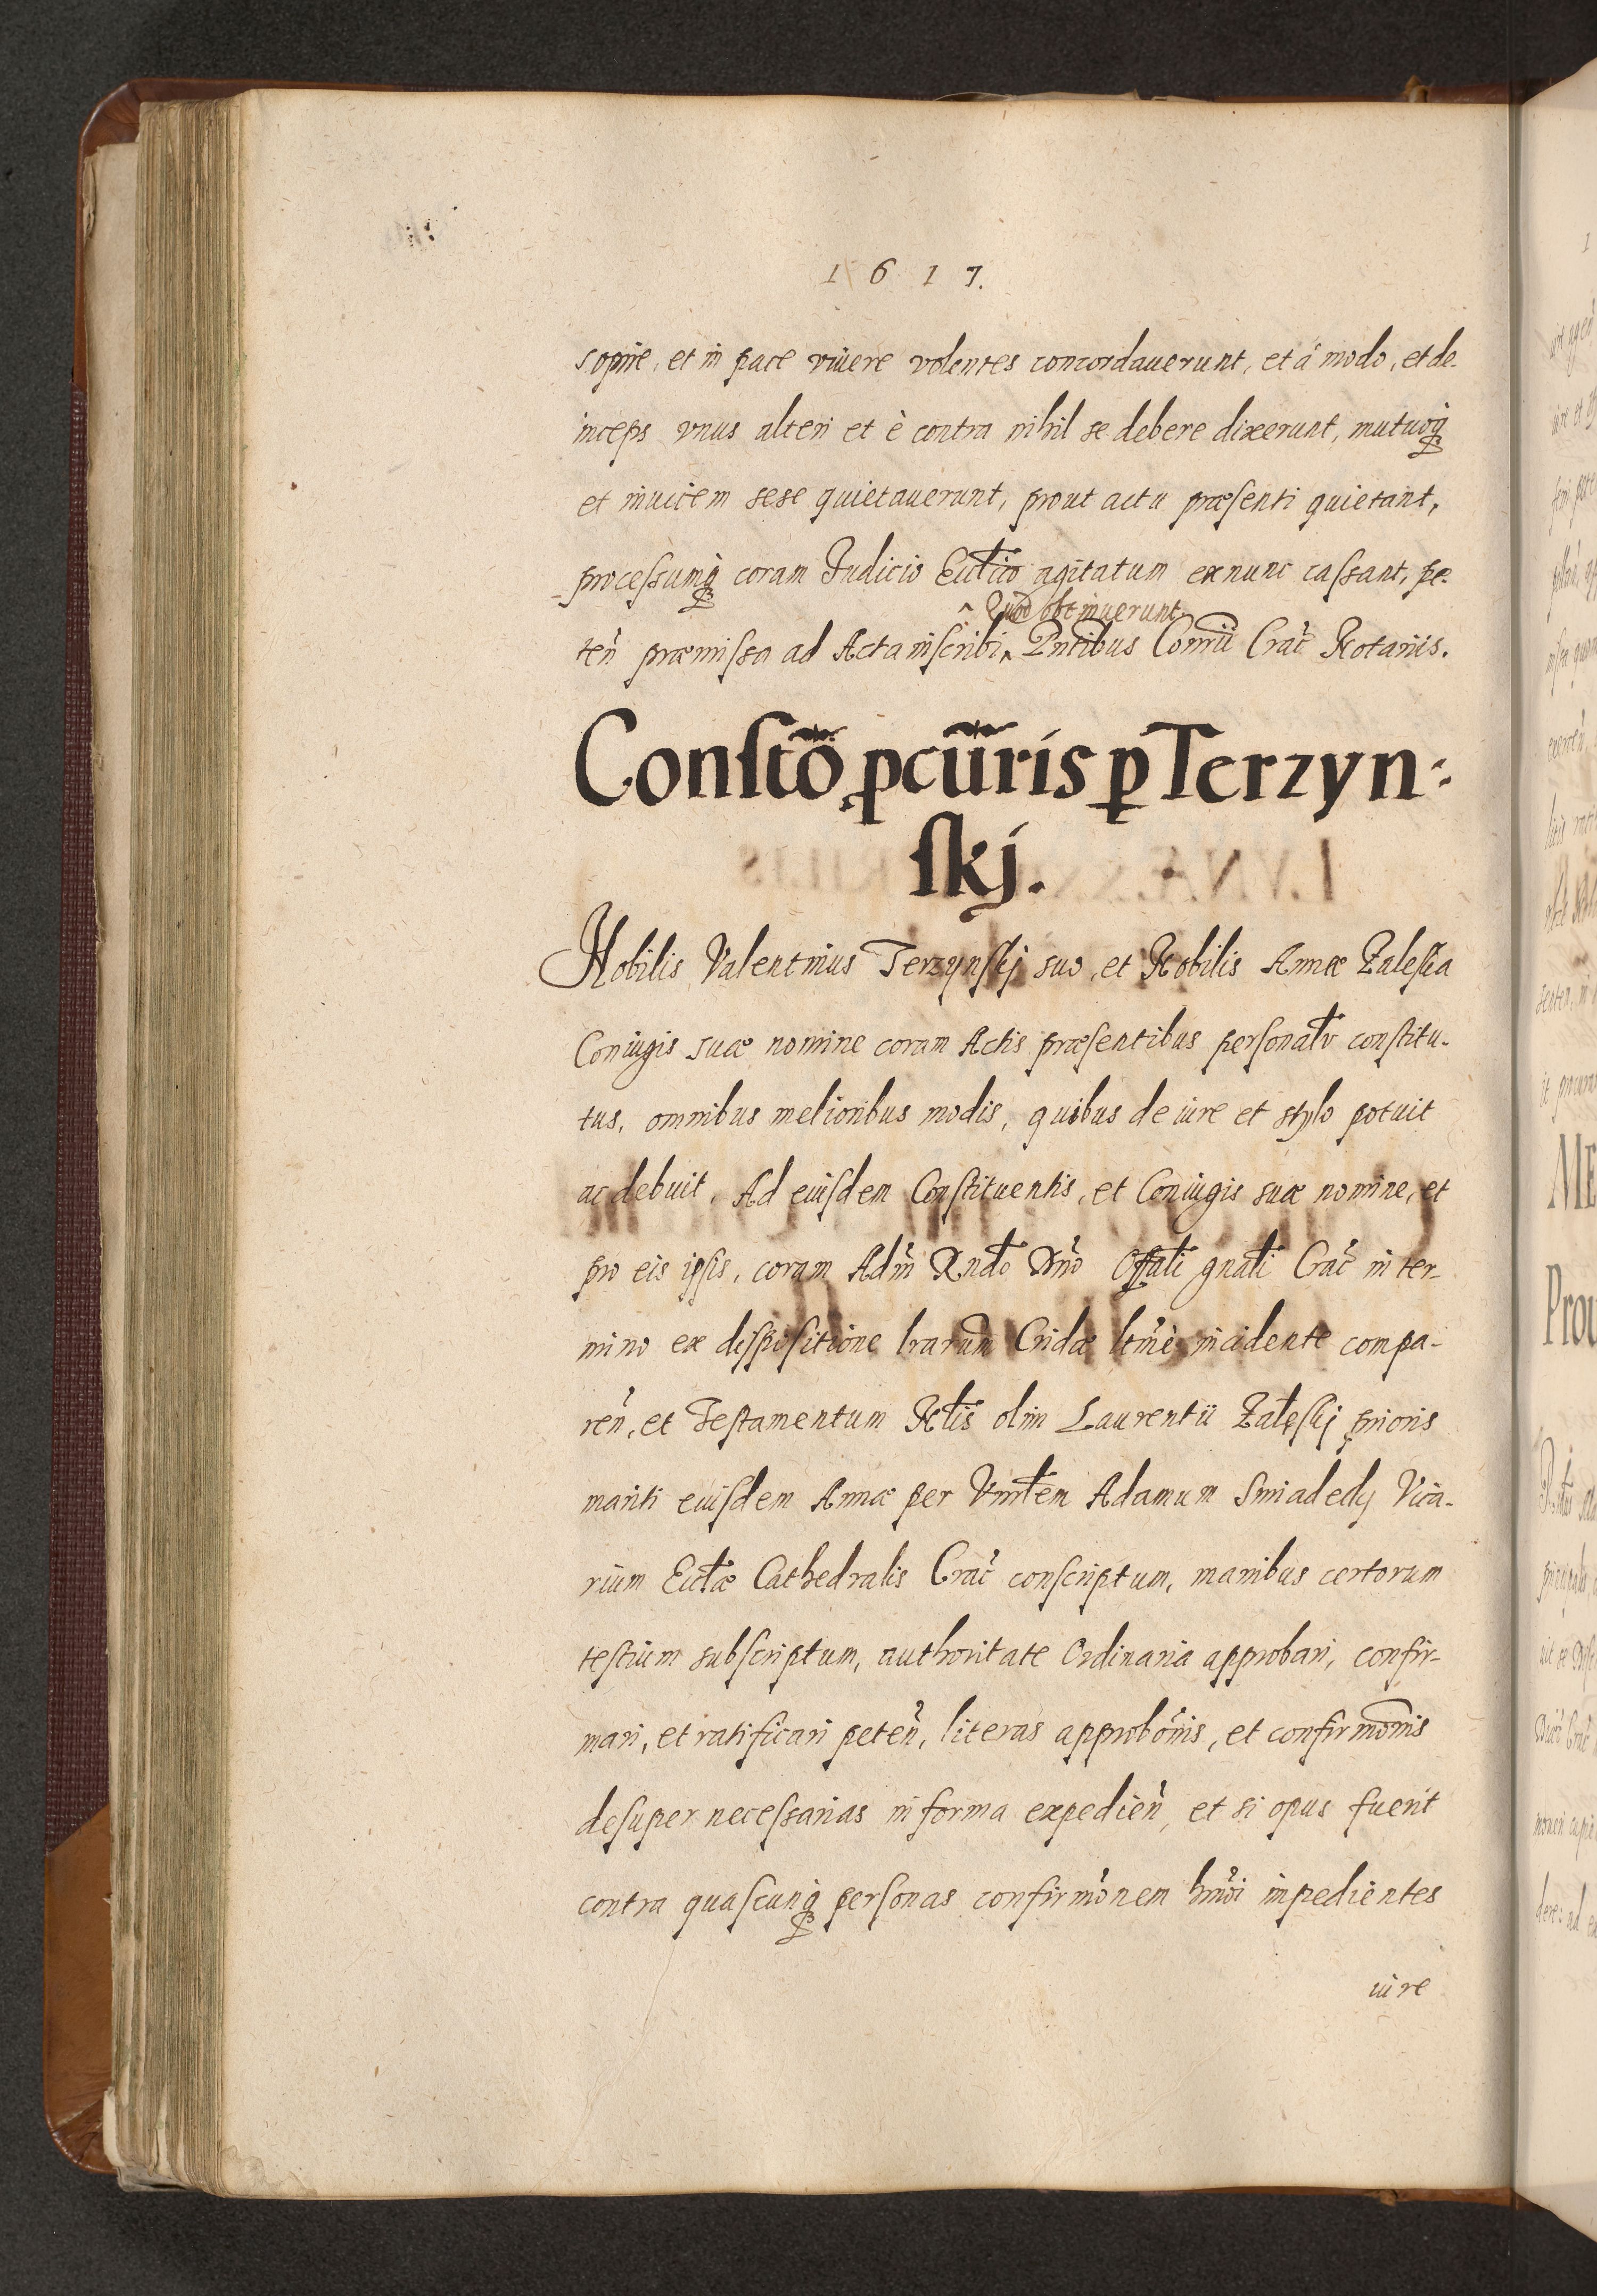 1 6 1 7.
sopire, et in pace viuere volentes concordauerunt, et à modo, et de-
inceps vnus alteri et è contra nihil se debere dixerunt, mutuoq̃
et inuicem sese quietauerunt, prout actu præsenti quietant,
processumq̃ coram Iudicio Ecctico agitatum exnunc cassant, pe-
^ Quod obtinuerunt
teñ præmissa ad Acta inscribi ^ Pntibus Consrii Crac̃ Notariis.
Constõ pcũris p Terzyn-
skj.
Nobilis Valentinus Terzynskj suo, et Nobilis Annæ Zaleska
Coniugis suæ nomine coram Actis præsentibus personalr constitu-
tus, omnibus melioribus modis, quibus de iure et stylo potuit
ac debuit, Ad eiusdem Constituentis, et Coniugis suæ nomine, et
pro eis ipsis, coram Adm̃ Rndo Dño Offali gnali Crac̃ in ter-
mino ex dispositione lrarum Cridæ ltmè incidente compa-
reñ, et Testamentum Nlis olim Laurentii Zaleskj prioris
mariti eiusdem Annæ per Vnrlem Adamum Smiadedy Vica-
rium Ecclæ Cathedralis Crac̃ conscriptum, manibus certorum
testium subscriptum, authoritate Ordinaria approbari, confir-
mari, et ratificari peteñ, literas approbõnis, et confirmõnis
desuper necessarias in forma expedieñ, et si opus fuerit
contra quascunq̃ personas confirmõnem hmõi impedientes
iure